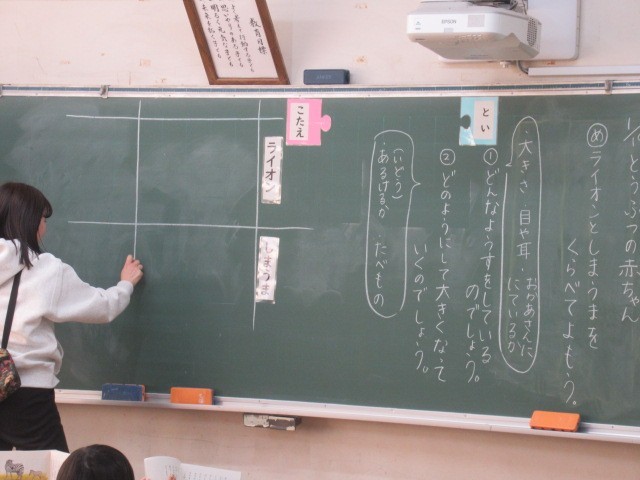 どうぶつの赤ちゃん
め ライオンとしまうまを
くらべてよもう。
とい
・大きさ・目や耳・おかあさんに
にているか
① どんなようすをしている
のでしょう。
② どのようにして大きくなって
いくのでしょう。
(いどう)
・あるけるか たべもの
こたえ
ライオン
しまうま
教育目標
EPSON